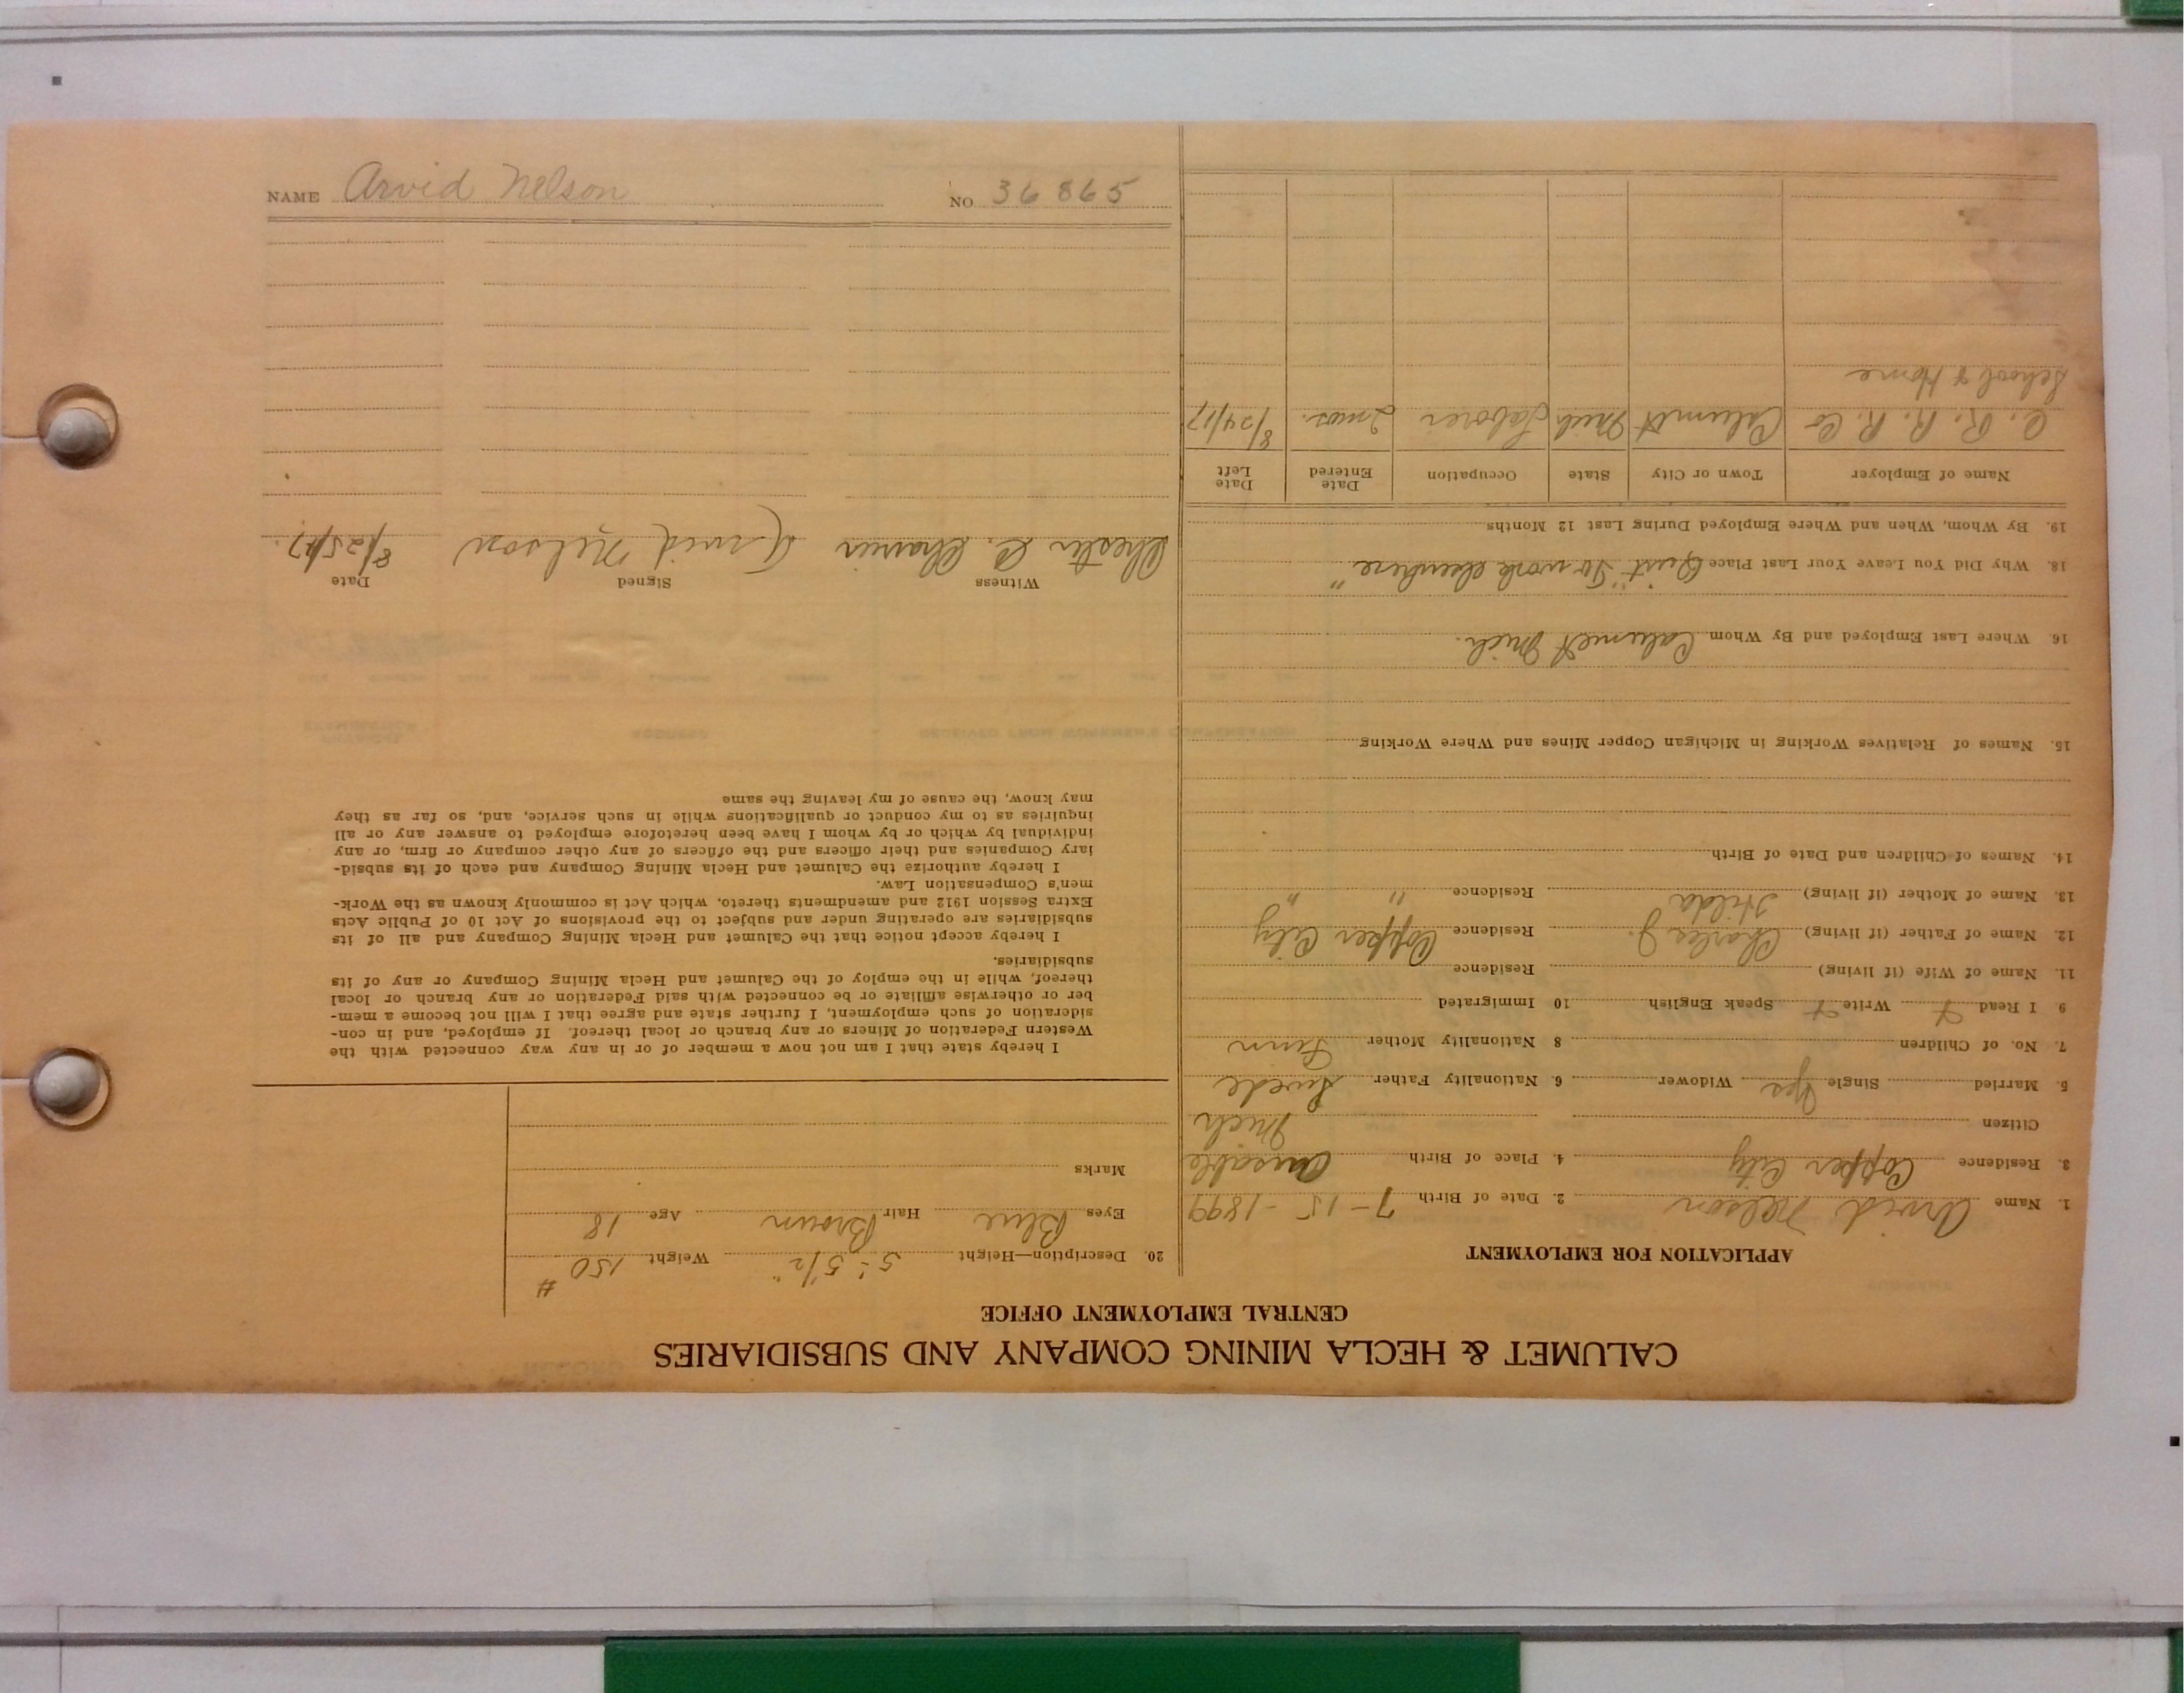 CALUMET & HECLA MINING COMPANY AND SUBSIDIARIES
CENTRAL EMPLOYMENT OFFICE
APPLICATION FOR EMPLOYMENT
1. Name Arvid Nelson 2. Date of Birth 7-15-1899
3. Residence Copper City 4. Place of Birth Ausable
Citizen Mich
5. Married Single Yes Widower 6. Nationality Father Swede
7. No. of Children 8 Nationality Mother Finn
9 I Read Write Speak English 10 Immigrated
11. Name of Wife (if living) Residence
12. Name of Father (if living) Charles J. Residence Copper City
13. Name of Mother (if living) Hilda Residence " "
14. Names of Children and Date of Birth
15. Names of Relatives Working in Michigan Copper Mines and Where Working
16. Where Last Employed and By Whom Calumet Mich.
18. Why Did You Leave Your Last Place Quit "To work elsewhere"
19. By Whom, When and Where Employed During Last 12 Months
Name of Employer Town or City State Occupation Date Entered Date Left
C. R. R. R. Co Calumet Mich Laborer 2 mos. 8/24/17
School & Home
20. Description—Height 5'- 5 1/2" Weight 150 #
Eyes Blue Hair Brown Age 18
Marks
I hereby state that I am not now a member of or in any way connected with the
Western Federation of Miners or any branch or local thereof. If employed, and in con-
sideration of such employment, I further state and agree that I will not become a mem-
ber or otherwise affiliate or be connected with said Federation or any branch or local
thereof, while in the employ of the Calumet and Hecla Mining Company or any of its
subsidiaries.
I hereby accept notice that the Calumet and Hecla Mining Company and all of its
subsidiaries are operating under and subject to the provisions of Act 10 of Public Acts
Extra Session 1912 and amendments thereto, which Act is commonly known as the Work-
men's Compensation Law.
I hereby authorize the Calumet and Hecla Mining Company and each of its subsid-
iary Companies and their officers and the officers of any other company or firm, or any
individual by which or by whom I have been heretofore employed to answer any or all
inquiries as to my conduct or qualifications while in such service, and, so far as they
may know, the cause of my leaving the same
Witness Signed Date
Chester C. Arvid Nelson 8/25/17.
NAME Arvid Nelson NO 36865